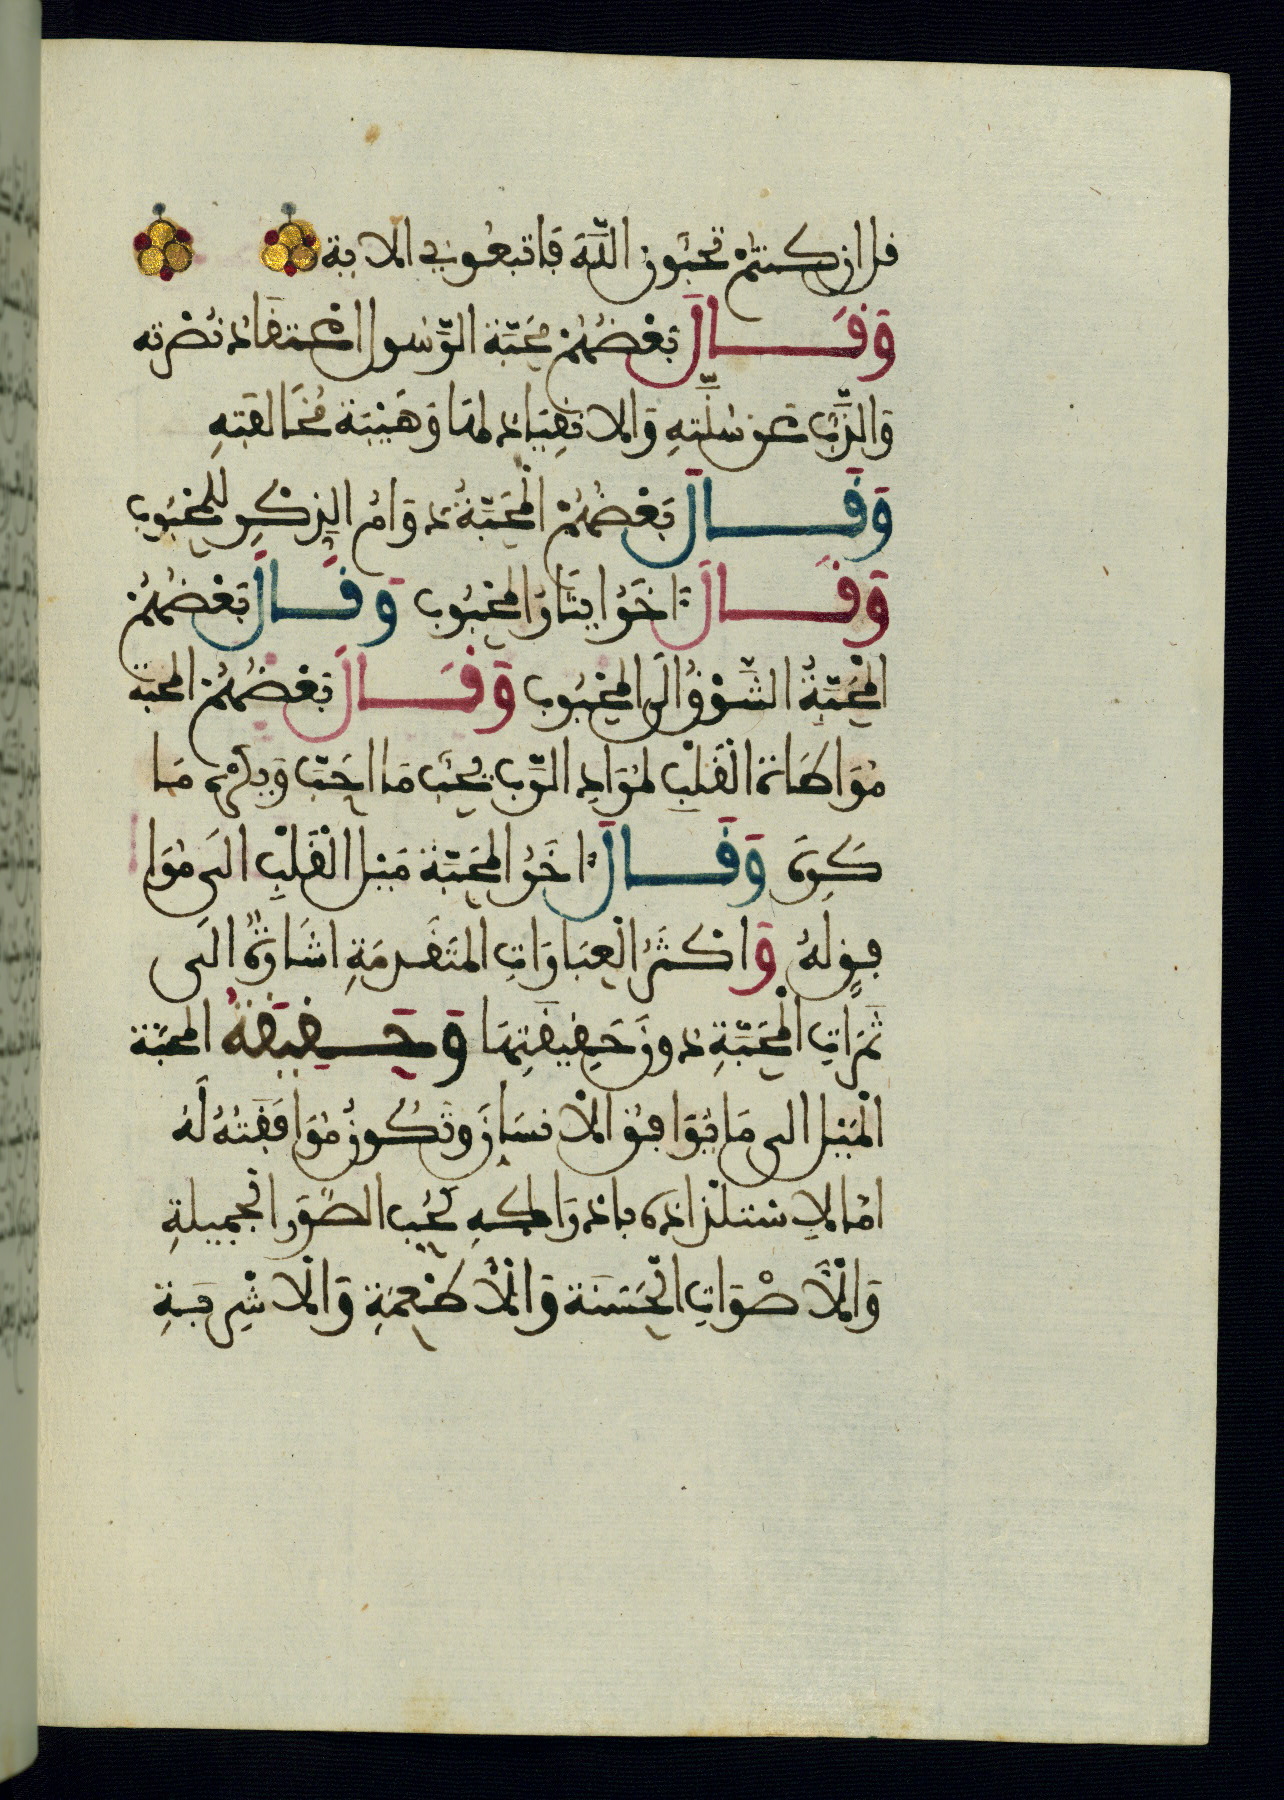 قل ان كنتم تحبون الله فاتبعوني الاية
وَقَالَ بَعْضُهُمْ مَحَبَّة الرَّسُول اعْتقَاد نُصْرَته
وَالذَّبّ عَن سُنَّتِهِ وَالانقِيَاد لهَا وَهَيْبَة مُخَالفَتِهِ
وَقَالَ بَعْضُهُمْ الْمَحَبَّةُ دَوَامُ الذِّكْرِ لِلْمَحْبُوب
وَقَالَ ءاخَرُ ايثَارُ الْمَحْبُوب وَقَالَ بَعْضُهُمْ
الْمَحَبَّةُ الشَّوْقُ الَى الْمَحْبُوب وَقَالَ بَعْضُهُمْ المحَبَّة
مُوَاطَاة الْقَلْبِ لمُرَادِ الرَّبّ يُحِبُّ مَا احَبَّ وَيكْرَه مَا
كَرِهَ وَقَالَ ءاخَرُ الْمَحَبَّة مَيْل الْقَلْبِ الَى مُوَا
فِقٍ لَهُ وَاكْثَرُ الْعِبَارَاتِ الْمتَقَدِّمَةِ اشَارَةٌ الَى
ثَمَرَاتِ الْمَحَبَّةِ دونَ حَقِيقَتِهَا وَحَقِيقَةُ المحَبَّة
الْمَيْل الى مَا يُوَافِقُ الانسَانَ وتَكُونُ مُوَافَقَتُهُ لَهُ
امَّا لاِسْتلْذَاذه بادْرَاكهِ كَحُبِّ الصُّوَر الْجَمِيلَةِ
وَالاصْوَاتِ الْحَسَنَة وَالاطْعِمَةِ وَالاشْرِبَةِ